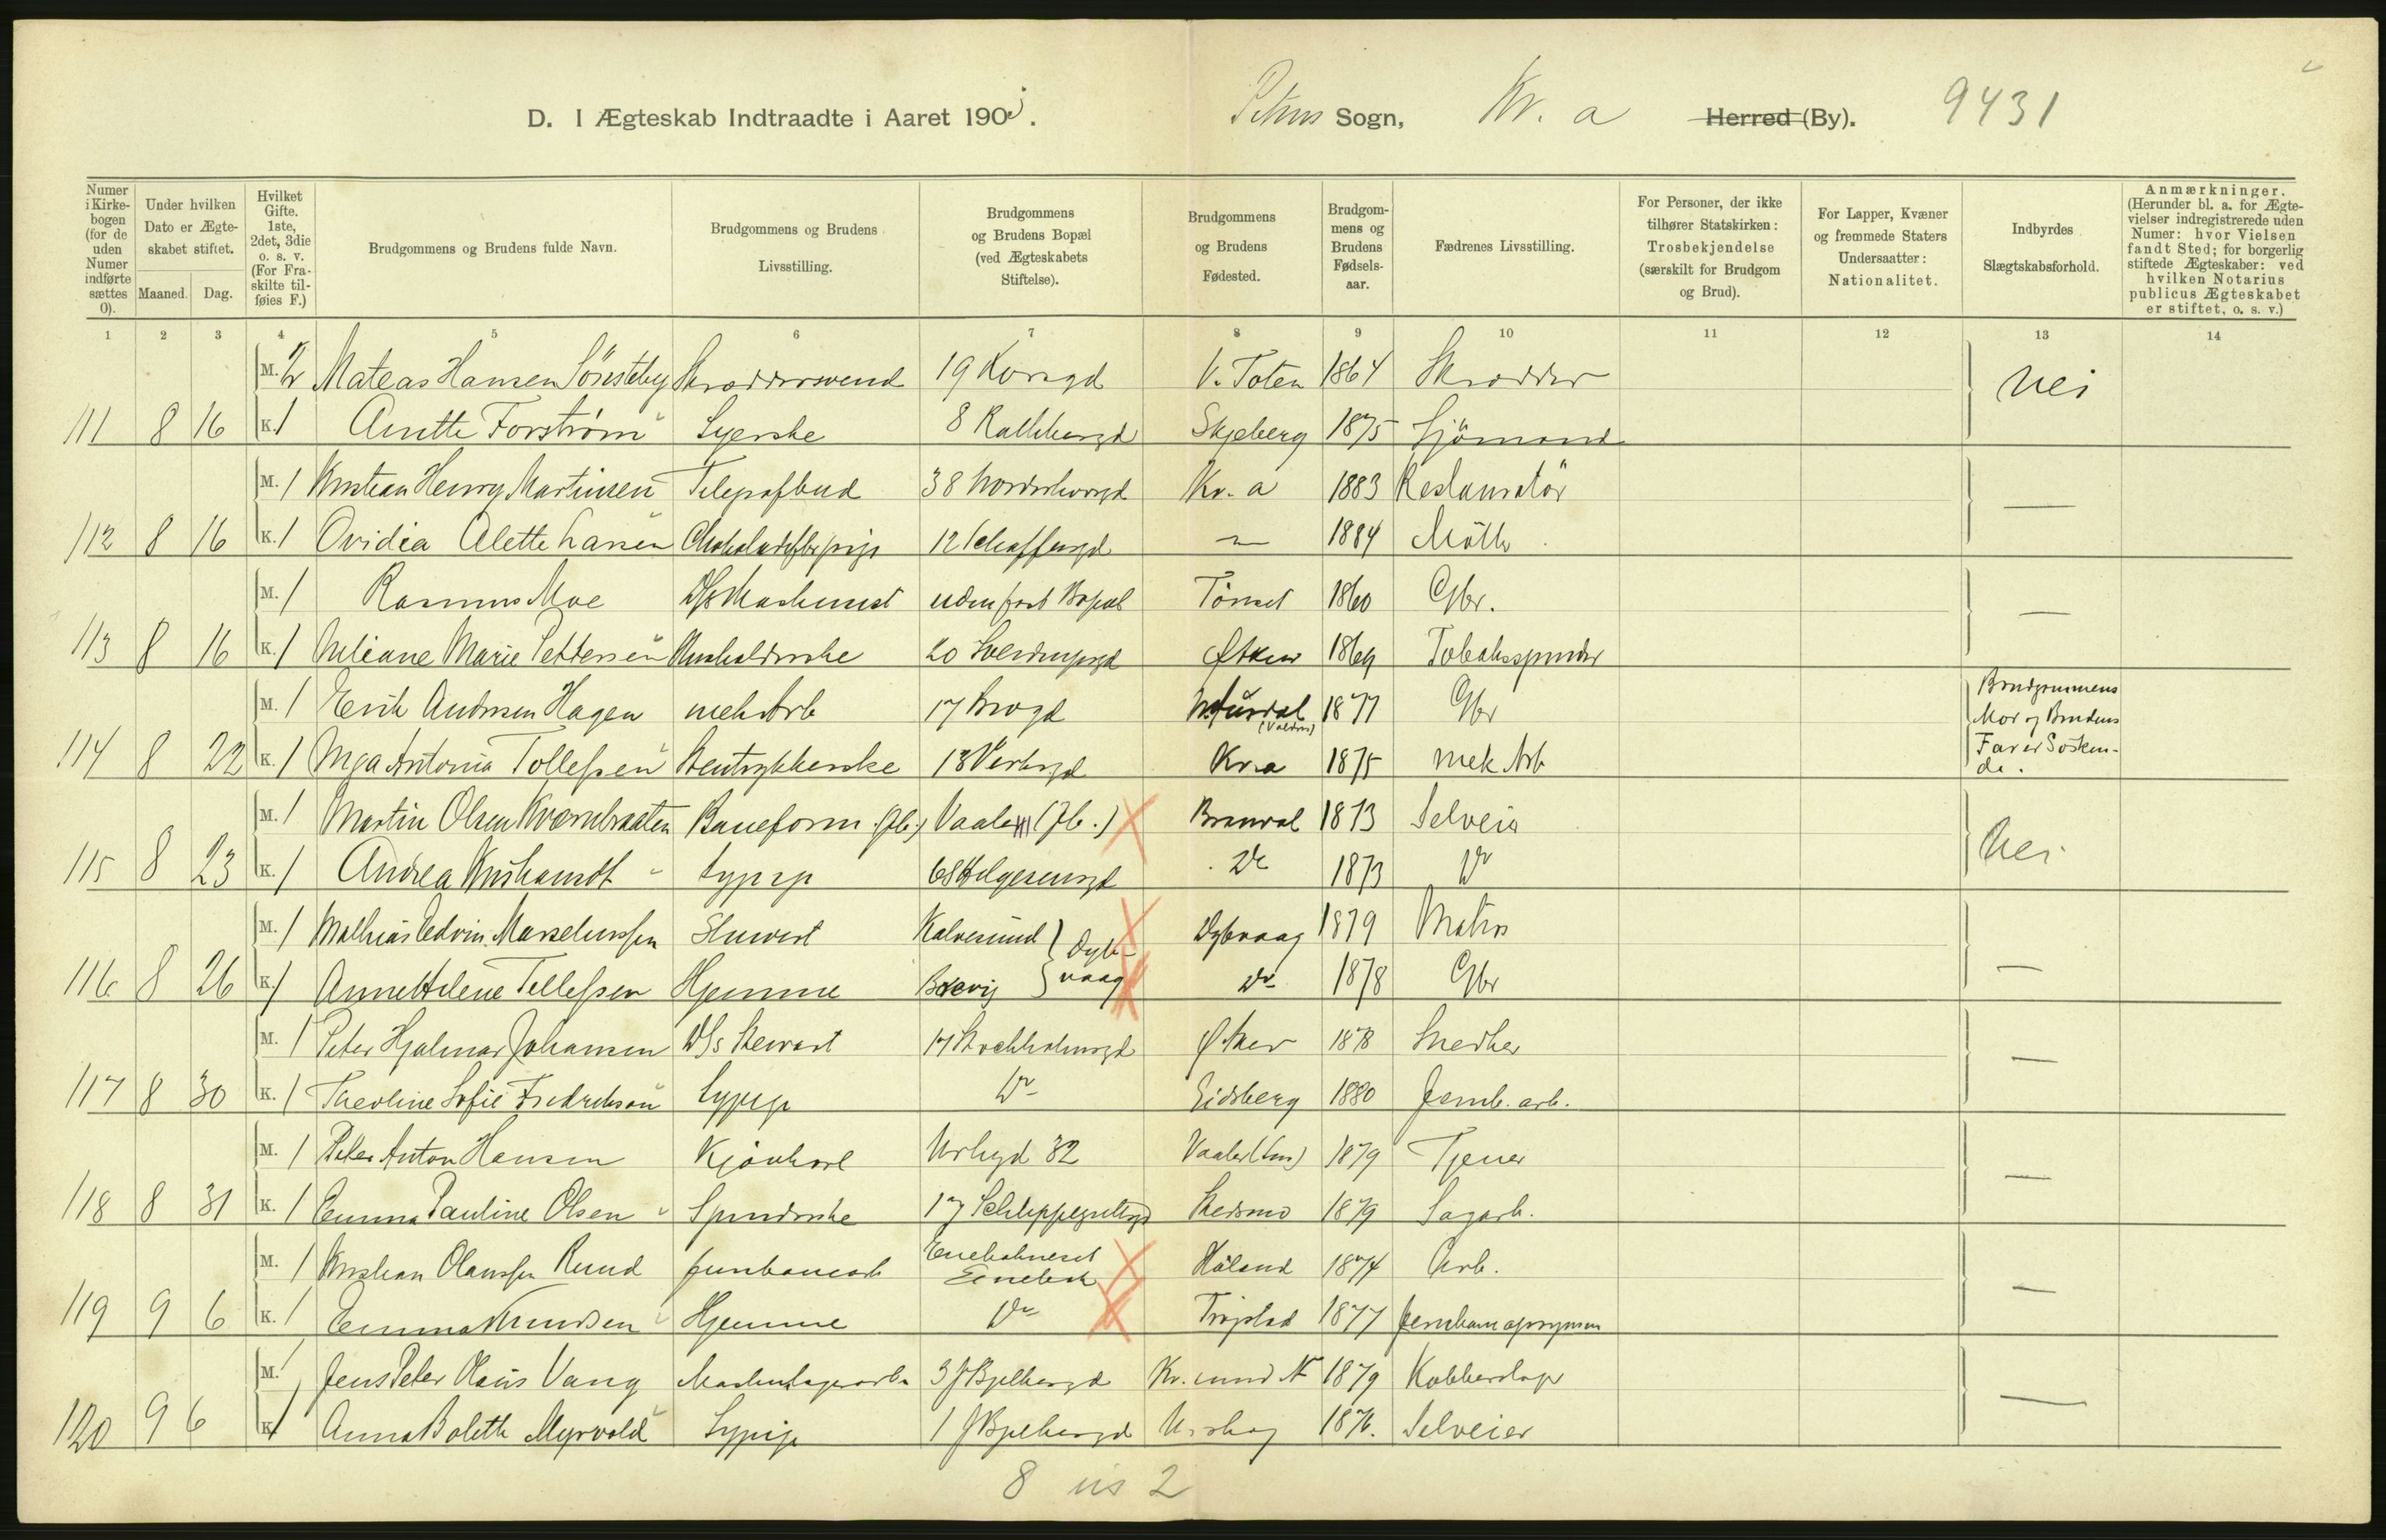 D. I Ægteskab Indtraadte i Aaret 190 .
Petrus Sogn, Kr. a Herred (By). 9431
Numer i Kirkebogen (for de uden Numer indførte sættes 0).
Under hvilken Dato er Ægteskabet stiftet.
Maaned. Dag.
Hvilket Gifte. 1ste, 2det, 3die o. s. v. (For Fraskilte tilføies F.)
Brudgommens og Brudens fulde Navn.
Brudgommens og Brudens Livsstilling.
Brudgommens og Brudens Bopæl (ved Ægteskabets Stiftelse).
Brudgommens og Brudens Fødested.
Brudgommens og Brudens Fødselsaar.
Fædrenes Livsstilling.
For Personer, der ikke tilhører Statskirken: Trosbekjendelse (særskilt for Brudgom og Brud).
For Lapper, Kvæner og fremmede Staters Undersaatter: Nationalitet.
Indbyrdes Slægtskabsforhold.
Anmærkninger. (Herunder bl. a. for Ægtevielser indregistrerede uden Numer: hvor Vielsen fandt Sted; for borgerlig stiftede Ægteskaber: ved hvilken Notarius publicus Ægteskabet er stiftet, o. s. v.)
1 2 3 4 5 6 7 8 9 10 11 12 13 14
M. 2 Mateas Hansen Sörsteby Skræddersvend 19 Korsgd V. Toten 1864 Skrædder nei
111 8 16 K. 1 Anette Forström Syerske 8 Rathkesgd Skjeberg 1875 Sjömand
M. 1 Kristian Henry Martinsen Telegrafbud 38 Nordre Kr. a 1883 Restauratör —
112 8 16 K. 1 Ovidia Alette Larsen 12 Schaffersgd " 1884 Möll
M. 1 Rasmus Moe Maskinist uden fast Bopæl Tönset 1860 Gbr. —
113 8 16 K. 1 Juliane Marie Pettersen Husholderske 20 Sverdrupsgd Ø Aker 1869 Tobaksspinder
M. 1 Erik Andersen Hagen mek Arb 17 Brogd N. Aurdal (Valdres) 1877 Gbr Brudgommens Mor og Brudens Far er Söskende.
114 8 22 K. 1 Inga Antonia Tollefsen Stentrykkerske 18 Verksgd Kr. a 1875 mek Arb
M. 1 Martin Olsen Kværnbraaten Baneform. (Jb.) Vaaler (Jb.) Branval 1873 Selveier Nei
115 8 23 K. 1 Andrea Sypige 68 Helgesensgd Do 1873 Do
M. 1 Mathias Edvin Marseliussen Stuvert Kalvesund } Dybvaag Dybvaag 1879 Matros —
116 8 26 K. 1 Anne Helene Tellefsen Hjemme Do 1878 Gbr
M. 1 Peter Hjalmar Johansen D/s Stewart 17 Stockholmsgd Ø Aker 1878 Snedker —
117 8 30 K. 1 Theoline Sofie Fredriksen Sypige Do Eidsberg 1880 Jernb. arb.
M. 1 Peter Anton Hansen Kjörekarl Urtegd 32 Vaaler (Sm) 1879 Tjener —
118 8 31 K. 1 Emma Pauline Olsen Spinderske 17 Schleppegrellsgd Skedsmo 1879 Sagarb.
M. 1 Kristian Olaussen Rund Jernbanearb Enebak Höland 1874 Arb. —
119 9 6 K. 1 Emma Knudsen Hjemme Do Trøgstad 1877 Jernbaneopsynsm
M. 1 Jens Peter Olaus Vang 3 J Bjelkesgd Kr. sund N 1879 Kobberslager —
120 9 6 K. 1 Anna Bolette Myrvold Sypige 1 J Bjelkesgd Urskog 1876. Selveier